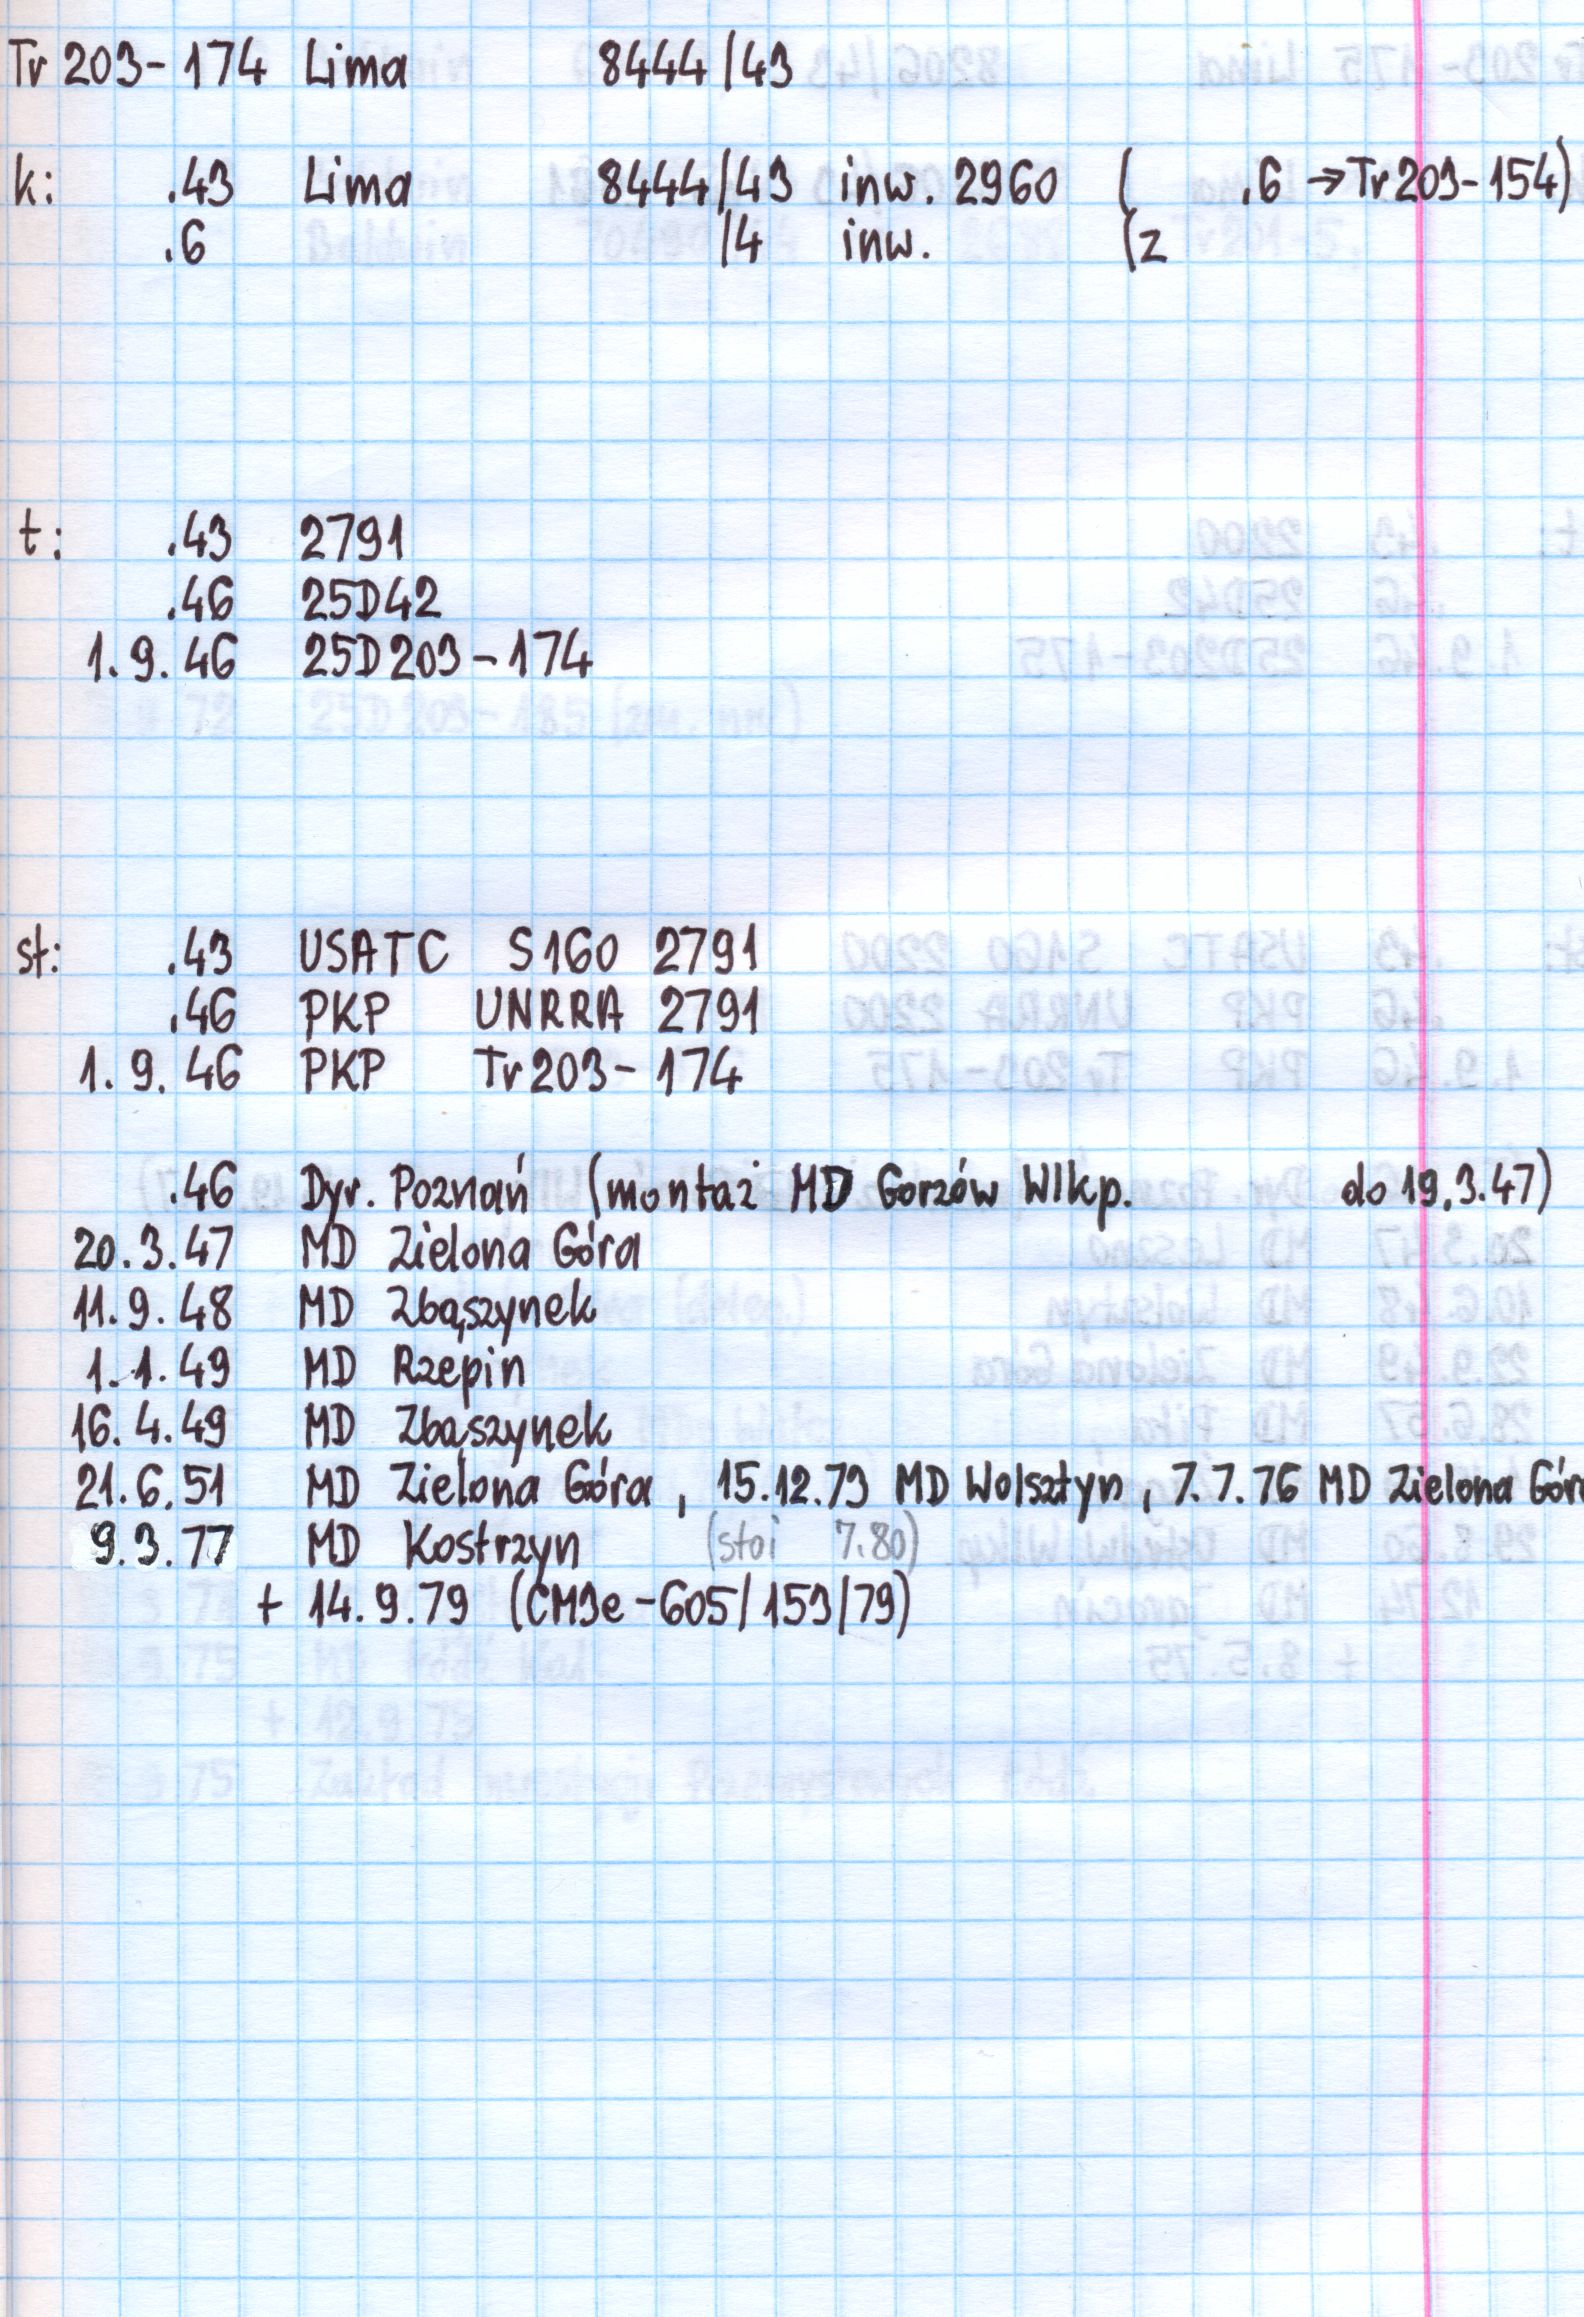 Tr 203-174 Lima 8444/43
k: .43 Lima 8444/43 inw. 2960 ( .6 → Tr 203-154)
.6 /4 inw. (z
t: .43 2791
.46 25D42
1.9.46 25D203-174
st: .43 USATC S160 2791
.46 PKP UNRRA 2791
1.9.46 PKP Tr203-174
.46 Dyr. Poznań (montaż MD Gorzów Wlkp. do 19.3.47)
20.3.47 MD Zielona Góra
11.9.48 MD Zbąszynek
1.1.49 MD Rzepin
16.4.49 MD Zbąszynek
21.6.51 MD Zielona Góra, 15.12.73 MD Wolsztyn, 7.7.76 MD Zielona Góra
9.3.77 MD Kostrzyn (stoi 7.80)
+ 14.9.79 (CM3e-605/153/79)